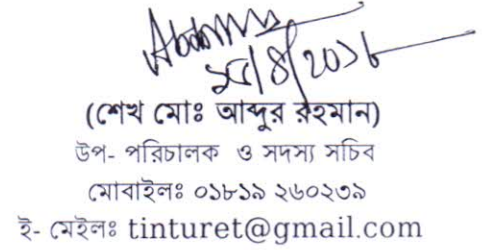 (শেখ মোঃ আব্দুর রহমান)
উপ- পরিচালক ও সদস্য সচিব
মোবাইলঃ ০১৮১৯ ২৬০২৩৯
ই- মেইলঃ tinturet@gmail.com